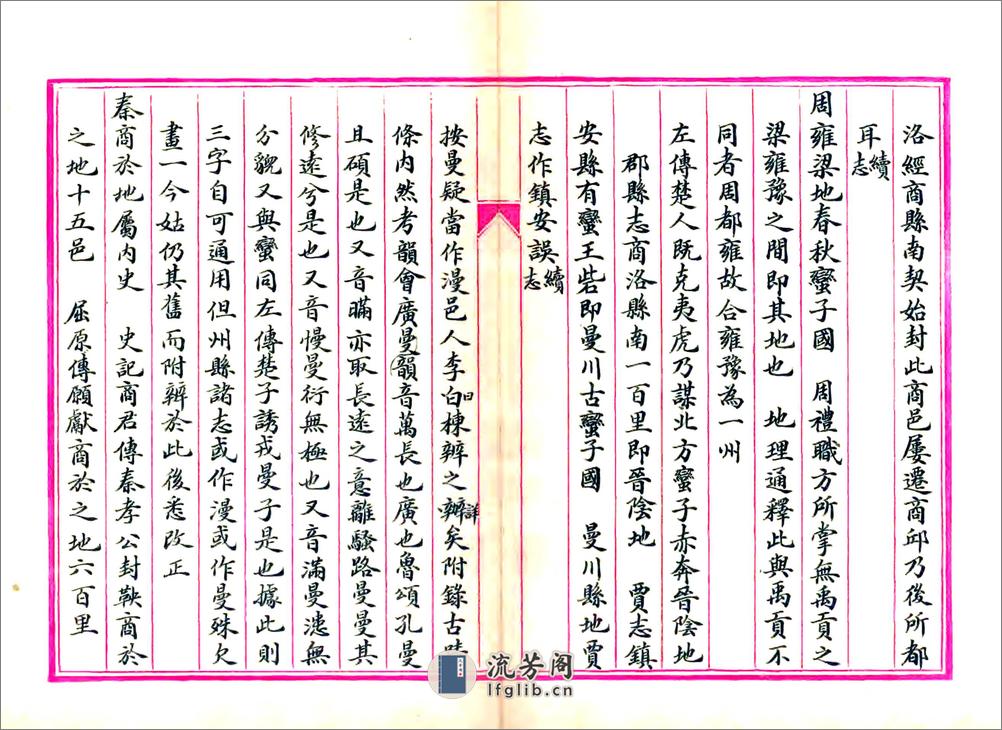 洛經商縣南契始封此商邑屢遷商邱乃後所都
耳續志
周雍梁地春秋蠻子國　周禮職方所掌無禹貢之
梁雍豫之間即其地也　地理通釋此與禹貢不
同者周都雍故合雍豫為一州
左傳楚人既克夷虎乃謀北方蠻子赤奔晉陰地
郡縣志商洛縣南一百里即晉陰地　賈志鎮
安縣有蠻王砦即曼川古蠻子國　曼川縣地賈
志作鎮安誤續志
按曼疑當作漫邑人李白日棟辨之辨詳矣附錄古蹟
條內然考韻會廣曼韻音萬長也廣也魯頌孔曼
且碩是也又音瞞亦取長遠之意離騷路曼曼其
修遠兮是也又音慢曼衍無極也又音滿曼漶無
分貌又與蠻同左傳楚子誘戎曼子是也據此則
三字自可通用但州縣諸志或作漫或作曼殊欠
畫一今姑仍其舊而附辨於此後悉改正
秦商於地屬內史　史記商君傳秦孝公封鞅商於
之地十五邑　屈原傳願獻商於之地六百里
流芳阁
lfglib.cn